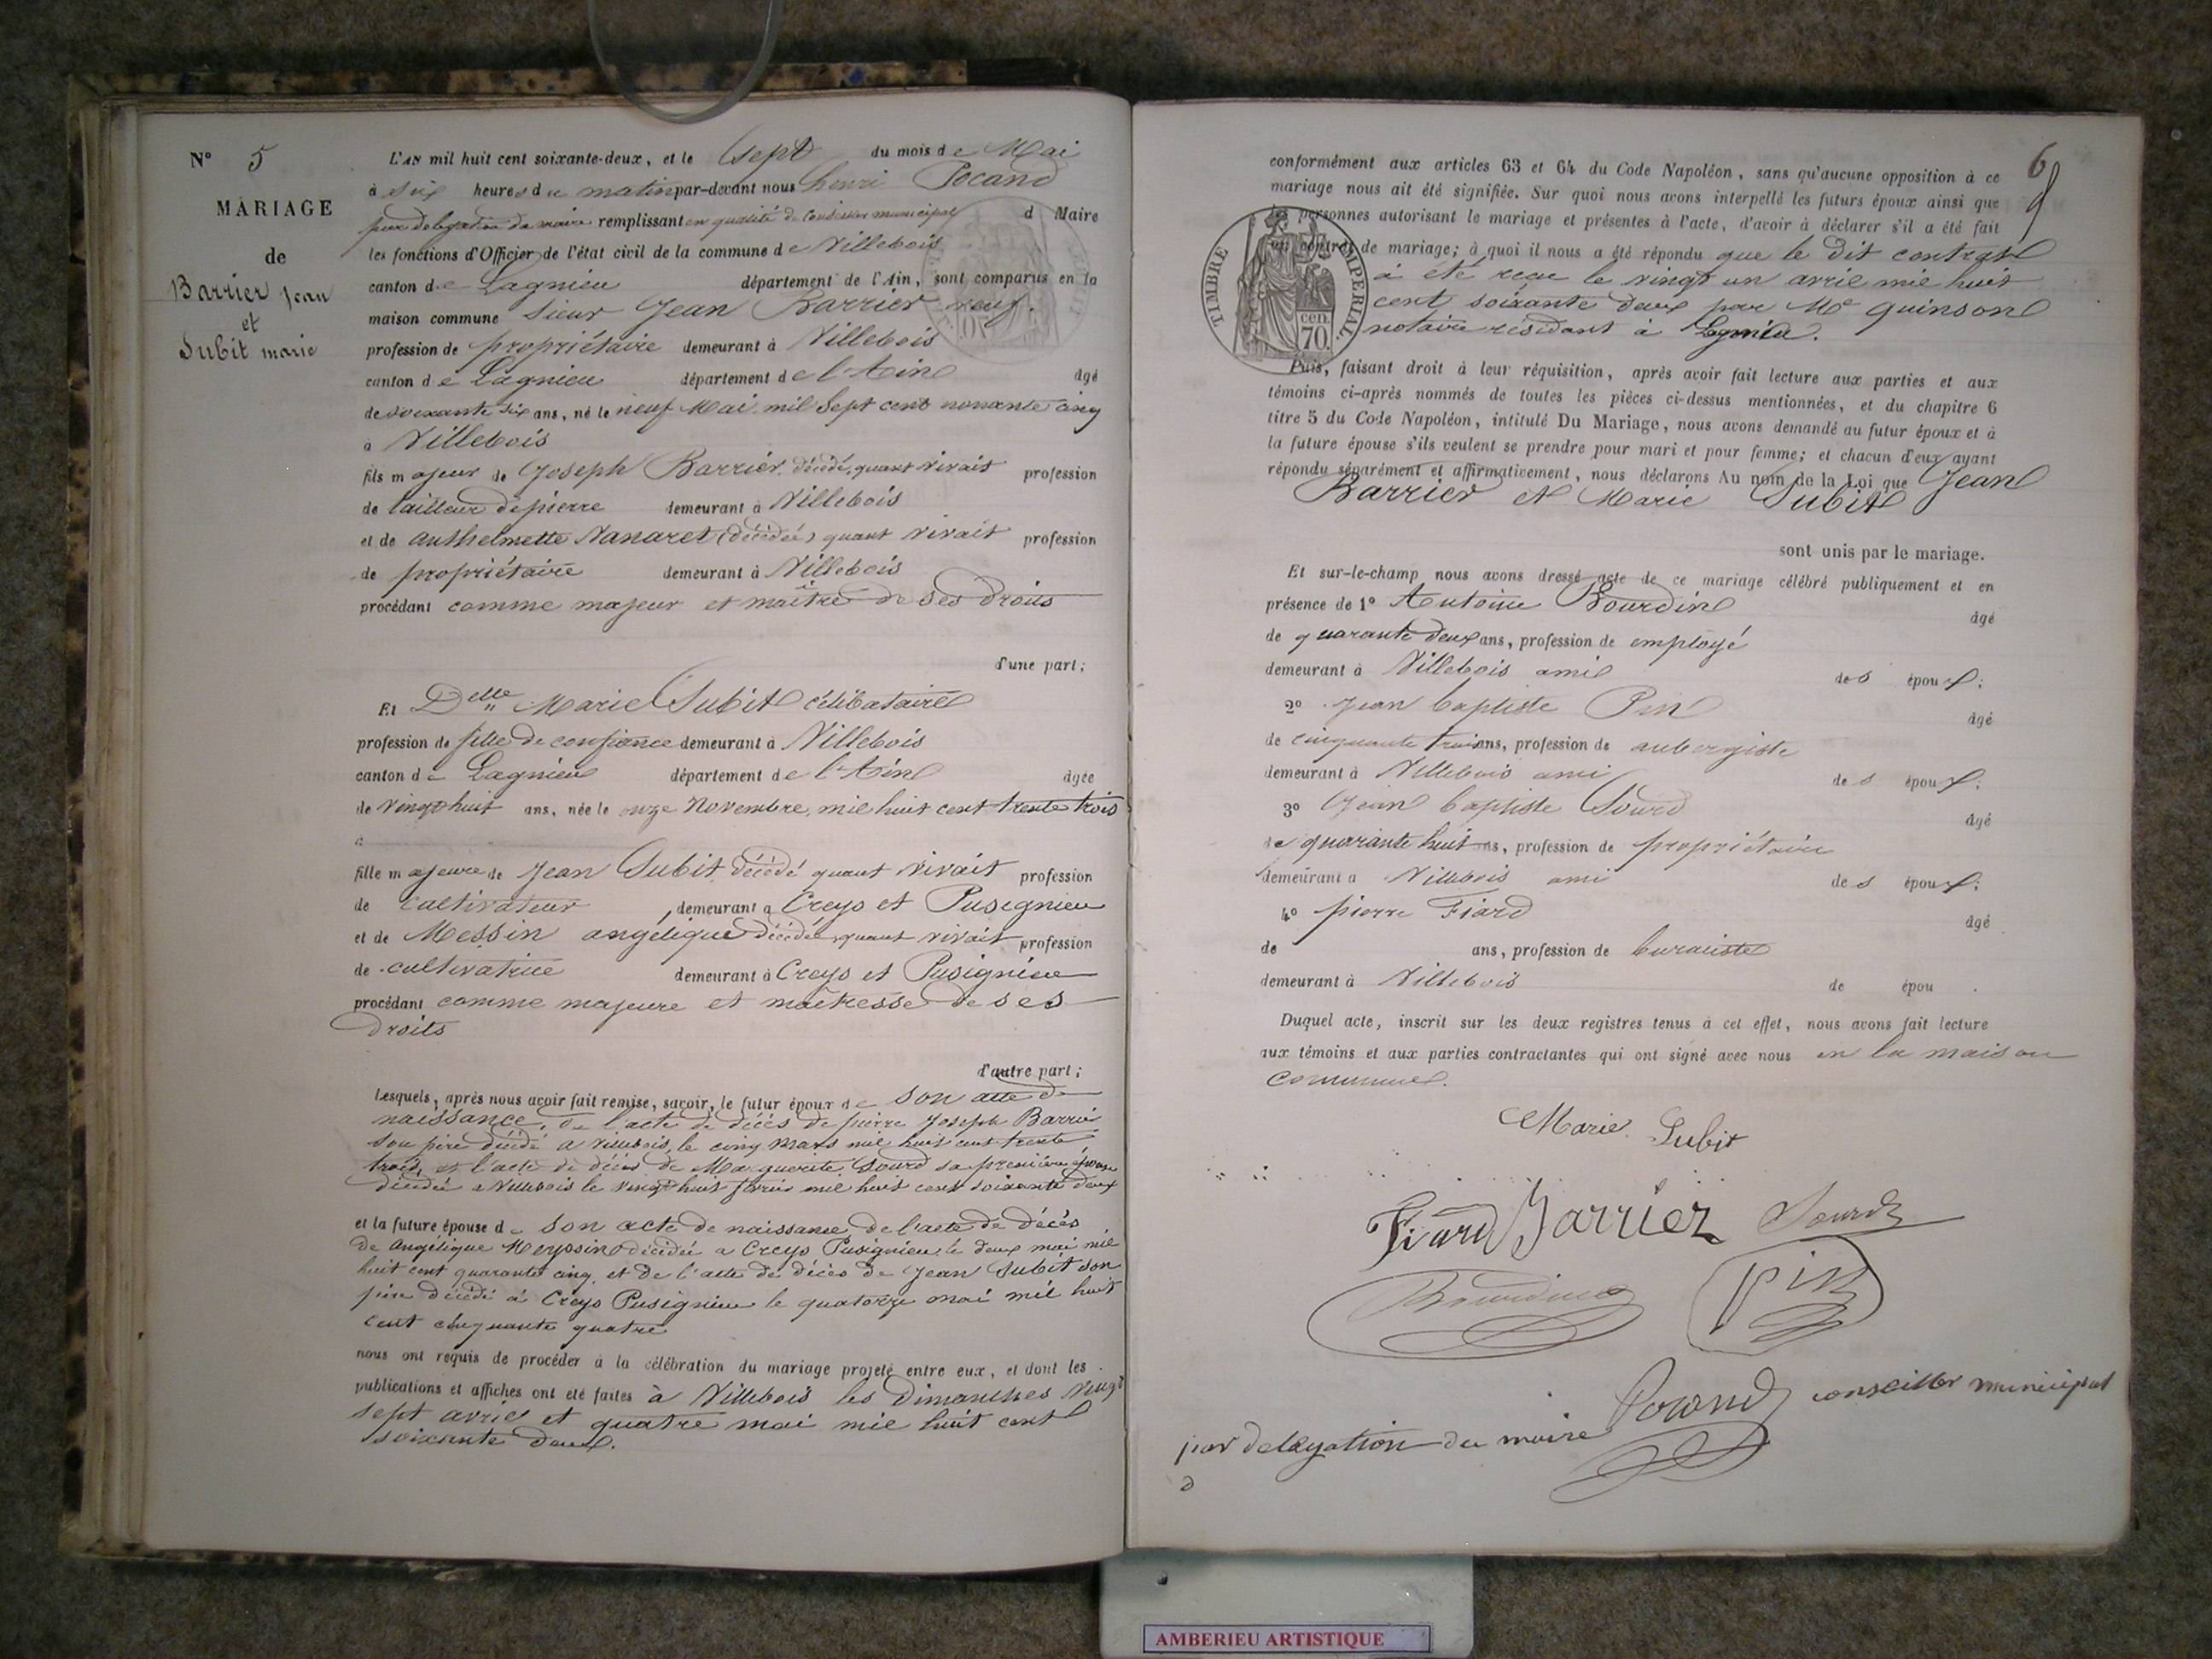 N° 5
MARIAGE
de
Barrier Jean
et
Subit marie
L'AN mil huit cent soixante-deux, et le sept du mois de Mai
à six heures du matin par-devant nous henri Pocand
par delegation du maire remplissant en qualité de Conseiller municipal d Maire
les fonctions d'Officier de l'état civil de la commune de Villebois
canton de Lagnieu département de l'Ain, sont comparus en la
maison commune Sieur Jean Barrier veuf.
profession de propriétaire demeurant à Villebois
canton de Lagnieu département de l'Ain âgé
de soixante six ans, né le neuf Mai mil Sept cent nonante cinq
à Villebois
fils majeur de Joseph Barrier décédé, quant vivait profession
de tailleur de pierre demeurant à Villebois
et de anthelmette Nanaret (décédée) quant vivait profession
de propriétaire demeurant à Villebois
procédant comme majeur et maître de ses droits
d'une part;
Et Delle Marie Subit célibataire
profession de fille de confiance demeurant à Villebois
canton de Lagnieu département de l'Ain âgée
de vingt huit ans, née le onze Novembre, mil huit cent trente trois
à
fille majeure de Jean Subit décédé quant vivait profession
de cultivateur demeurant à Creys et Pusegnieu
et de Messin angélique décédée, quant vivait profession
de cultivatrice demeurant à Creys et Pusignieu
procédant comme majeure et maîtresse de ses
droits
d'autre part;
Lesquels, après nous avoir fait remise, savoir, le futur époux de son acte de
naissance, de l'acte de décès de pierre Joseph Barrier
son père décédé a villebois, le cinq Mars mil huit cent trente
trois, et l'acte de décès de Marguerite Sourd sa première épouse
décédée a Villebois le vingt huit fevrier mil huit cent soixante deux
et la future épouse de son acte de naissance de l'acte de décès
de Angélique Meyssin décédée a Creys Pusignieu, le deux mai mil
huit cent quarante cinq, et de l'acte de décès de Jean Subit son
père décédé à Creys Pusignieu le quatorze mai mil huit
cent cinquante quatre
nous ont requis de procéder à la célébration du mariage projeté entre eux, et dont les
publications et affiches ont été faites à Villebois les Dimanches vingt
sept avril et quatre mai mil huit cent
soixante deux.
6
conformément aux articles 63 et 64 du Code Napoléon, sans qu'aucune opposition à ce
mariage nous ait été signifiée. Sur quoi nous avons interpellé les futurs époux ainsi que
les personnes autorisant le mariage et présentes à l'acte, d'avoir à déclarer s'il a été fait
un contrat de mariage; à quoi il nous a été répondu que le dit contrat
à été reçu le vingt un avril mil huit
cent soixante deux par Me quinson
notaire résidant à Lagnieu.
TIMBRE IMPERIAL
cen. 70.
Puis, faisant droit à leur réquisition, après avoir fait lecture aux parties et aux
témoins ci-après nommés de toutes les pièces ci-dessus mentionnées, et du chapitre 6
titre 5 du Code Napoléon, intitulé Du Mariage, nous avons demandé au futur époux et à
la future épouse s'ils veulent se prendre pour mari et pour femme; et chacun d'eux ayant
répondu séparément et affirmativement, nous déclarons Au nom de la Loi que Jean
Barrier et Marie Subit
sont unis par le mariage.
Et sur-le-champ nous avons dressé acte de ce mariage célébré publiquement et en
présence de 1° Antoine Bourdin âgé
de quarante deux ans, profession de employé
demeurant à Villebois ami des époux;
2° Jean baptiste Pin âgé
de cinquante trois ans, profession de aubergiste
demeurant à Villebois ami des époux;
3° Jean baptiste Sourd âgé
de quarante huit ans, profession de propriétaire
demeurant à Villebois ami des époux;
4° pierre Fiard âgé
de ans, profession de buraliste
demeurant à Villebois de épou .
Duquel acte, inscrit sur les deux registres tenus à cet effet, nous avons fait lecture
aux témoins et aux parties contractantes qui ont signé avec nous en la maison
commune.
Marie Subit
Fiard Barrier Sourd
Bourdin Pin
Pocand conseiller municipal
par delegation du maire
AMBERIEU ARTISTIQUE